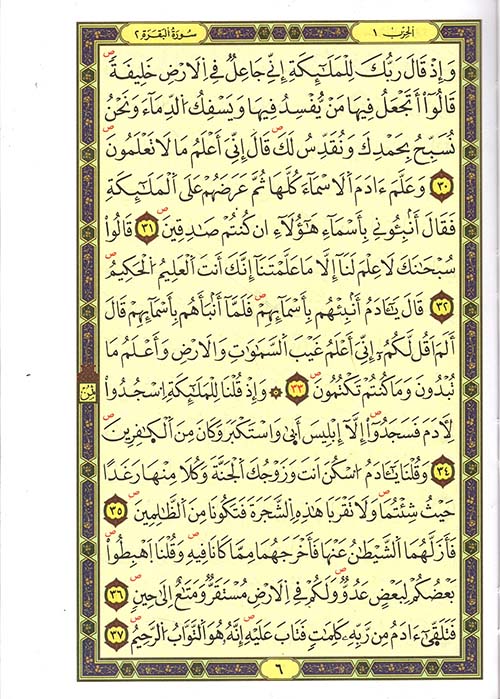 الحزب ١ سورة البقرة ٢
وَإِذْ قَالَ رَبُّكَ لِلْمَلَٰٓئِكَةِ إِنِّے جَاعِلٌ فِے اِلَارْضِ خَلِيفَةٗ
قَالُوٓاْ أَتَجْعَلُ فِيهَا مَنْ يُّفْسِدُ فِيهَا وَيَسْفِكُ اُلدِّمَآءَ وَنَحْنُ
نُسَبِّحُ بِحَمْدِكَ وَنُقَدِّسُ لَكَ قَالَ إِنِّيَ أَعْلَمُ مَا لَا تَعْلَمُونَ
٣٠ وَعَلَّمَ ءَادَمَ اَلَاسْمَآءَ كُلَّهَا ثُمَّ عَرَضَهُمْ عَلَى اَلْمَلَٰٓئِكَةِ
فَقَالَ أَنۢبِـُٔونِے بِأَسْمَآءِ هَٰٓؤُلَآءِ ان كُنتُمْ صَٰدِقِينَ ٣١ قَالُواْ
سُبْحَٰنَكَ لَا عِلْمَ لَنَآ إِلَّا مَا عَلَّمْتَنَآ إِنَّكَ أَنتَ اَلْعَلِيمُ اُلْحَكِيمُ
٣٢ قَالَ يَٰٓـَٔادَمُ أَنۢبِئْهُم بِأَسْمَآئِهِمْ فَلَمَّآ أَنۢبَأَهُم بِأَسْمَآئِهِمْ قَالَ
أَلَمَ اَقُل لَّكُمُۥٓ إِنِّيَ أَعْلَمُ غَيْبَ اَلسَّمَٰوَٰتِ وَالَارْضِ وَأَعْلَمُ مَا
تُبْدُونَ وَمَا كُنتُمْ تَكْتُمُونَ ٣٣ ۞ وَإِذْ قُلْنَا لِلْمَلَٰٓئِكَةِ اِسْجُدُواْ
ثمن
لِأٓدَمَ فَسَجَدُوٓاْ إِلَّآ إِبْلِيسَ أَب۪ىٰ وَاسْتَكْبَرَ وَكَانَ مِنَ اَلْكٰ۪فِرِينَ
٣٤ وَقُلْنَا يَٰٓـَٔادَمُ اُسْكُنَ اَنتَ وَزَوْجُكَ اَلْجَنَّةَ وَكُلَا مِنْهَا رَغَداً
حَيْثُ شِئْتُمَا وَلَا تَقْرَبَا هَٰذِهِ اِلشَّجَرَةَ فَتَكُونَا مِنَ اَلظَّٰلِمِينَ ٣٥
فَأَزَلَّهُمَا اَلشَّيْطَٰنُ عَنْهَا فَأَخْرَجَهُمَا مِمَّا كَانَا فِيهِ وَقُلْنَا اَهْبِطُواْ
بَعْضُكُمْ لِبَعْضٍ عَدُوّٞ وَلَكُمْ فِے اِلَارْضِ مُسْتَقَرّٞ وَمَتَٰعٌ اِلَىٰ حِينٖ ٣٦
فَتَلَقّ۪ىٰٓ ءَادَمُ مِن رَّبِّهِۦ كَلِمَٰتٖ فَتَابَ عَلَيْهِ إِنَّهُۥ هُوَ اَلتَّوَّابُ اُلرَّحِيمُ ٣٧
٦